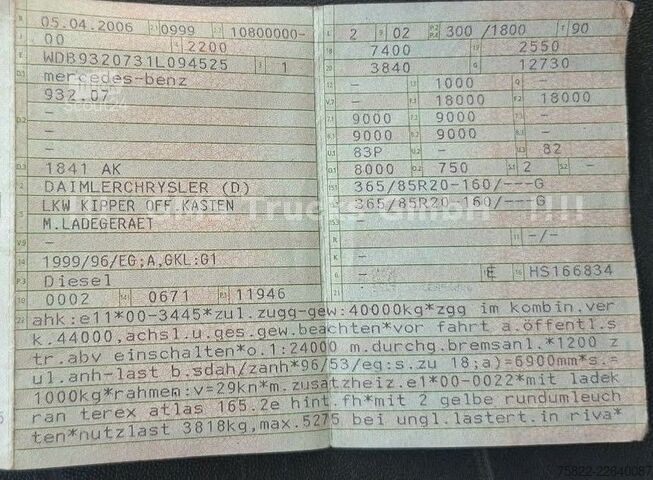 B 05.04.2006 2.1 0999 2.2 10800000-
J 00 4 2200
E WDB9320731L094525 3 1
D.1 mercedes-benz
932.07
D.2 -
-
-
D.3 1841 AK
2 DAIMLERCHRYSLER (D)
5 LKW KIPPER OFF.KASTEN
M.LADEGERAET
V.9 -
14 1999/96/EG;A,GKL:G1
P.3 Diesel
10 0002 14.1 0671 P.1 11946
L 2 9 02 P.2 P.4 300 /1800 T 90
18 7400 19 2550
20 3840 G 12730
12 - 13 1000 Q -
V.7 - F.1 18000 F.2 18000
7.1 9000 7.2 9000 7.3 -
8.1 9000 8.2 9000 8.3 -
U.1 83P U.2 - U.3 82
O.1 8000 O.2 750 S.1 2 S.2 -
15.1 365/85R20-160/---G
15.2 365/85R20-160/---G
15.3 -
R -
11 -/-
K -
6 - 17 E 16 HS166834
22 ahk:e11*00-3445*zul.zugg-gew:40000kg*zgg im kombin.ver
k.44000,achsl.u.ges.gew.beachten*vor fahrt a.öffentl.s
tr.abv einschalten*o.1:24000 m.durchg.bremsanl.*1200 z
ul.anh-last b.sdah/zanh*96/53/eg:s.zu 18;a)=6900mm*s.=
1000kg*rahmen:v=29kn*m.zusatzheiz.e1*00-0022*mit ladek
ran terex atlas 165.2e hint.fh*mit 2 gelbe rundumleuch
ten*nutzlast 3818kg,max.5275 bei ungl.lastert.in riva*
75822-22640087